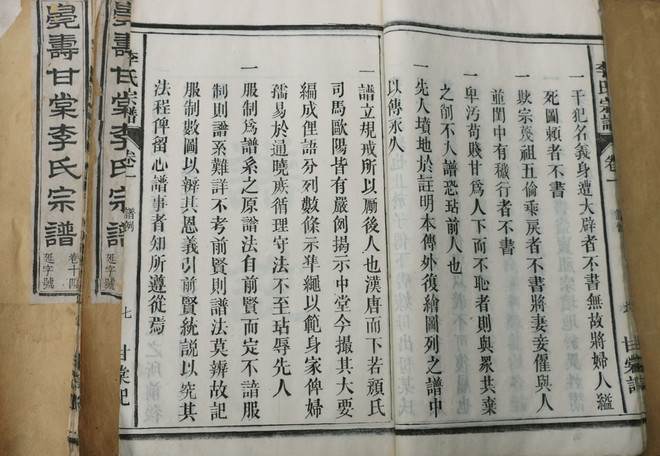 李氏宗譜 卷一 甘棠記
一干犯名義身遭大辟者不書無故將婦人縊
死圖賴者不書
一欺宗䙝祖五倫乖戾者不書將妻妾僱與人
並閨中有穢行者不書
一卑汚苟賤甘爲人下而不恥者則與眾共棄
之削不入譜恐玷前人也
一先人墳地於註明本傳外復繪圖列之譜中
以傳永久
一譜立規戒所以勵後人也漢唐而下若顔氏
司馬歐陽皆有嚴例揭示中堂今撮其大要
編成俚語分列數條示準繩以範身家俾婦
孺易於通曉庶循理守法不至玷辱先人
一服制爲譜系之原譜法自前賢而定不諳服
制則譜系難詳不考前賢則譜法莫辨故記
服制數圖以辨其恩義引前賢統說以究其
法程俾留心譜事者知所遵從焉
李氏宗譜 卷一 譜例 七 甘棠記
壽甘棠李氏宗譜
延字號
壽甘棠李氏宗譜
卷十四
延字號